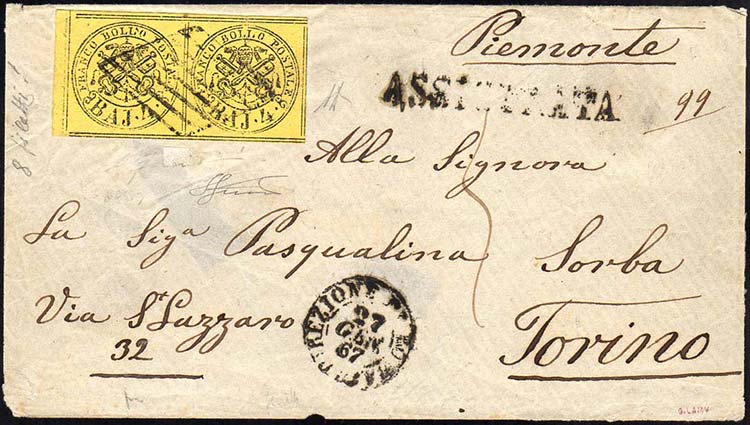 FRANCO BOLLO POSTALE FRANCO BOLLO POSTALE
BAJ. 4. BAJ. 4.
Piemonte
ASSICURATA
99
Alla Signora
La Sig.a Pasqualina Sorba
Via S. Lazzaro
32
Torino
DIREZIONE DI ROMA
27
GEN
67